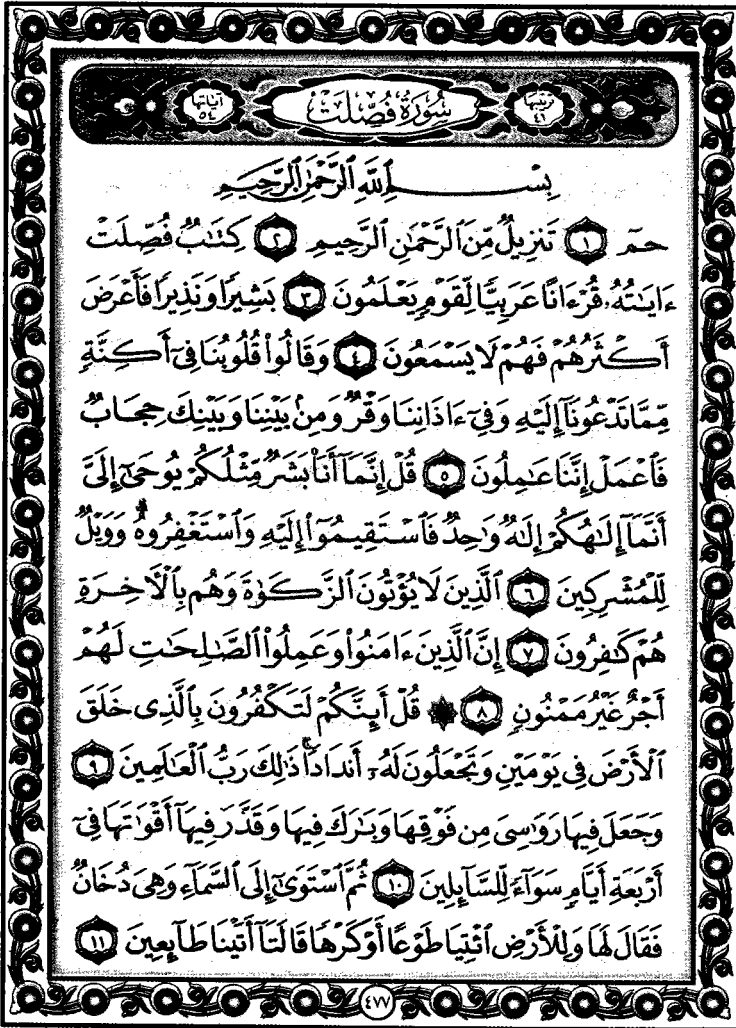 ترتيبها ٤١ سُورَةُ فُصِّلَتْ آياتها ٥٤
بِسْمِ ٱللَّهِ ٱلرَّحْمَٰنِ ٱلرَّحِيمِ
حمٓ ١ تَنزِيلٌ مِّنَ ٱلرَّحْمَٰنِ ٱلرَّحِيمِ ٢ كِتَٰبٌ فُصِّلَتْ
ءَايَٰتُهُۥ قُرْءَانًا عَرَبِيًّا لِّقَوْمٍ يَعْلَمُونَ ٣ بَشِيرًا وَنَذِيرًا فَأَعْرَضَ
أَكْثَرُهُمْ فَهُمْ لَا يَسْمَعُونَ ٤ وَقَالُوا۟ قُلُوبُنَا فِىٓ أَكِنَّةٍ
مِّمَّا تَدْعُونَآ إِلَيْهِ وَفِىٓ ءَاذَانِنَا وَقْرٌ وَمِنۢ بَيْنِنَا وَبَيْنِكَ حِجَابٌ
فَٱعْمَلْ إِنَّنَا عَٰمِلُونَ ٥ قُلْ إِنَّمَآ أَنَا۠ بَشَرٌ مِّثْلُكُمْ يُوحَىٰٓ إِلَىَّ
أَنَّمَآ إِلَٰهُكُمْ إِلَٰهٌ وَٰحِدٌ فَٱسْتَقِيمُوٓا۟ إِلَيْهِ وَٱسْتَغْفِرُوهُ ۗ وَوَيْلٌ
لِّلْمُشْرِكِينَ ٦ ٱلَّذِينَ لَا يُؤْتُونَ ٱلزَّكَوٰةَ وَهُم بِٱلْءَاخِرَةِ
هُمْ كَٰفِرُونَ ٧ إِنَّ ٱلَّذِينَ ءَامَنُوا۟ وَعَمِلُوا۟ ٱلصَّٰلِحَٰتِ لَهُمْ
أَجْرٌ غَيْرُ مَمْنُونٍ ٨ ۞ قُلْ أَئِنَّكُمْ لَتَكْفُرُونَ بِٱلَّذِى خَلَقَ
ٱلْأَرْضَ فِى يَوْمَيْنِ وَتَجْعَلُونَ لَهُۥٓ أَندَادًا ۚ ذَٰلِكَ رَبُّ ٱلْعَٰلَمِينَ ٩
وَجَعَلَ فِيهَا رَوَٰسِىَ مِن فَوْقِهَا وَبَٰرَكَ فِيهَا وَقَدَّرَ فِيهَآ أَقْوَٰتَهَا فِىٓ
أَرْبَعَةِ أَيَّامٍ سَوَآءً لِّلسَّآئِلِينَ ١٠ ثُمَّ ٱسْتَوَىٰٓ إِلَى ٱلسَّمَآءِ وَهِىَ دُخَانٌ
فَقَالَ لَهَا وَلِلْأَرْضِ ٱئْتِيَا طَوْعًا أَوْ كَرْهًا قَالَتَآ أَتَيْنَا طَآئِعِينَ ١١
٤٧٧